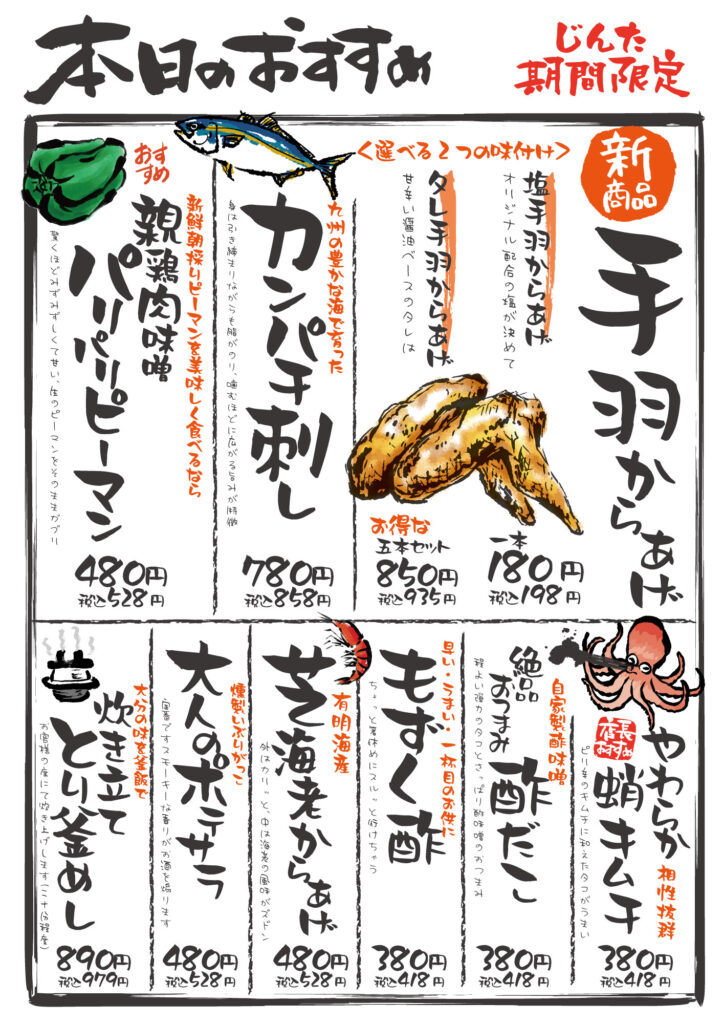 本日のおすすめ
じんた
期間限定
新商品
手羽からあげ
<選べる2つの味付け>
塩手羽からあげ
オリジナル配合の塩が決めて
タレ手羽からあげ
甘辛い醤油ベースのタレは
一本
180円
税込198円
お得な
五本セット
850円
税込935円
九州の豊かな海で育った
カンパチ刺し
身は引き締まりながらも脂がのり、噛むほどに広がる旨みが特徴
780円
税込858円
おすすめ
新鮮朝採りピーマンを美味しく食べるなら
親鶏肉味噌
パリパリピーマン
驚くほどみずみずしくて甘い、生のピーマンをそのままガブリ
480円
税込528円
店長おすすめ
やわらか
蛸キムチ
相性抜群
ピリ辛のキムチに和えたタコがうまい
380円
税込418円
自家製酢味噌
絶品
おつまみ
酢だこ
程よい弾力のタコとさっぱり酢味噌のおつまみ
380円
税込418円
早い・うまい・一杯目のお供に
もずく酢
ちょっと箸休めにスルッと行けちゃう
380円
税込418円
有明海産
芝海老からあげ
外はカリッと、中は海老の風味がズドン
480円
税込528円
燻製いぶりがっこ
大人のポテサラ
定番ですスモーキーな香りがお酒を煽ります
480円
税込528円
大分の味を釜飯で
炊き立て
とり釜めし
お客様の席にて炊き上げします(二十分程度)
890円
税込979円